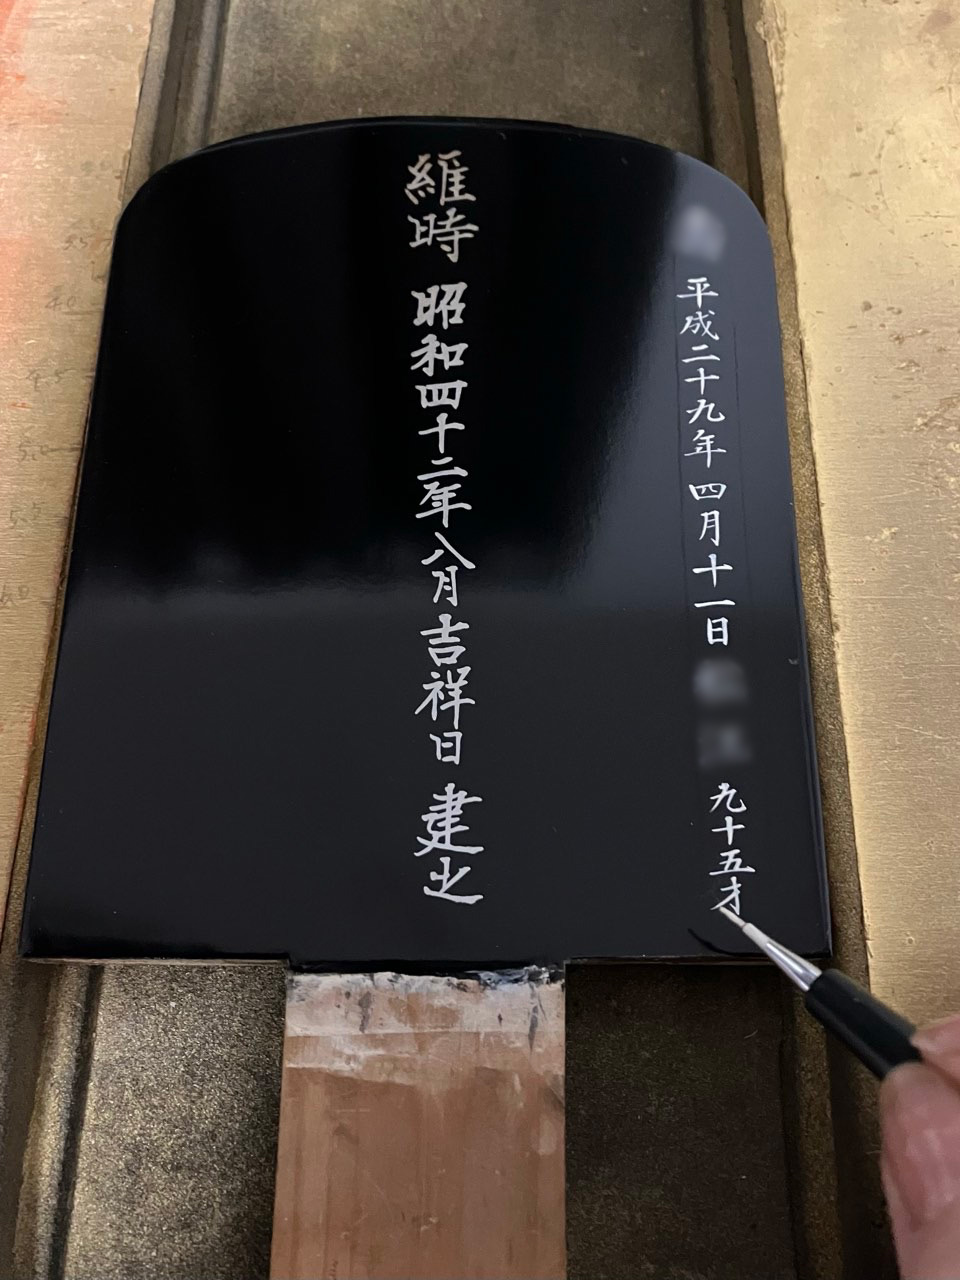 平成二十九年四月十一日 九十五才
維時 昭和四十二年八月吉祥日 建之